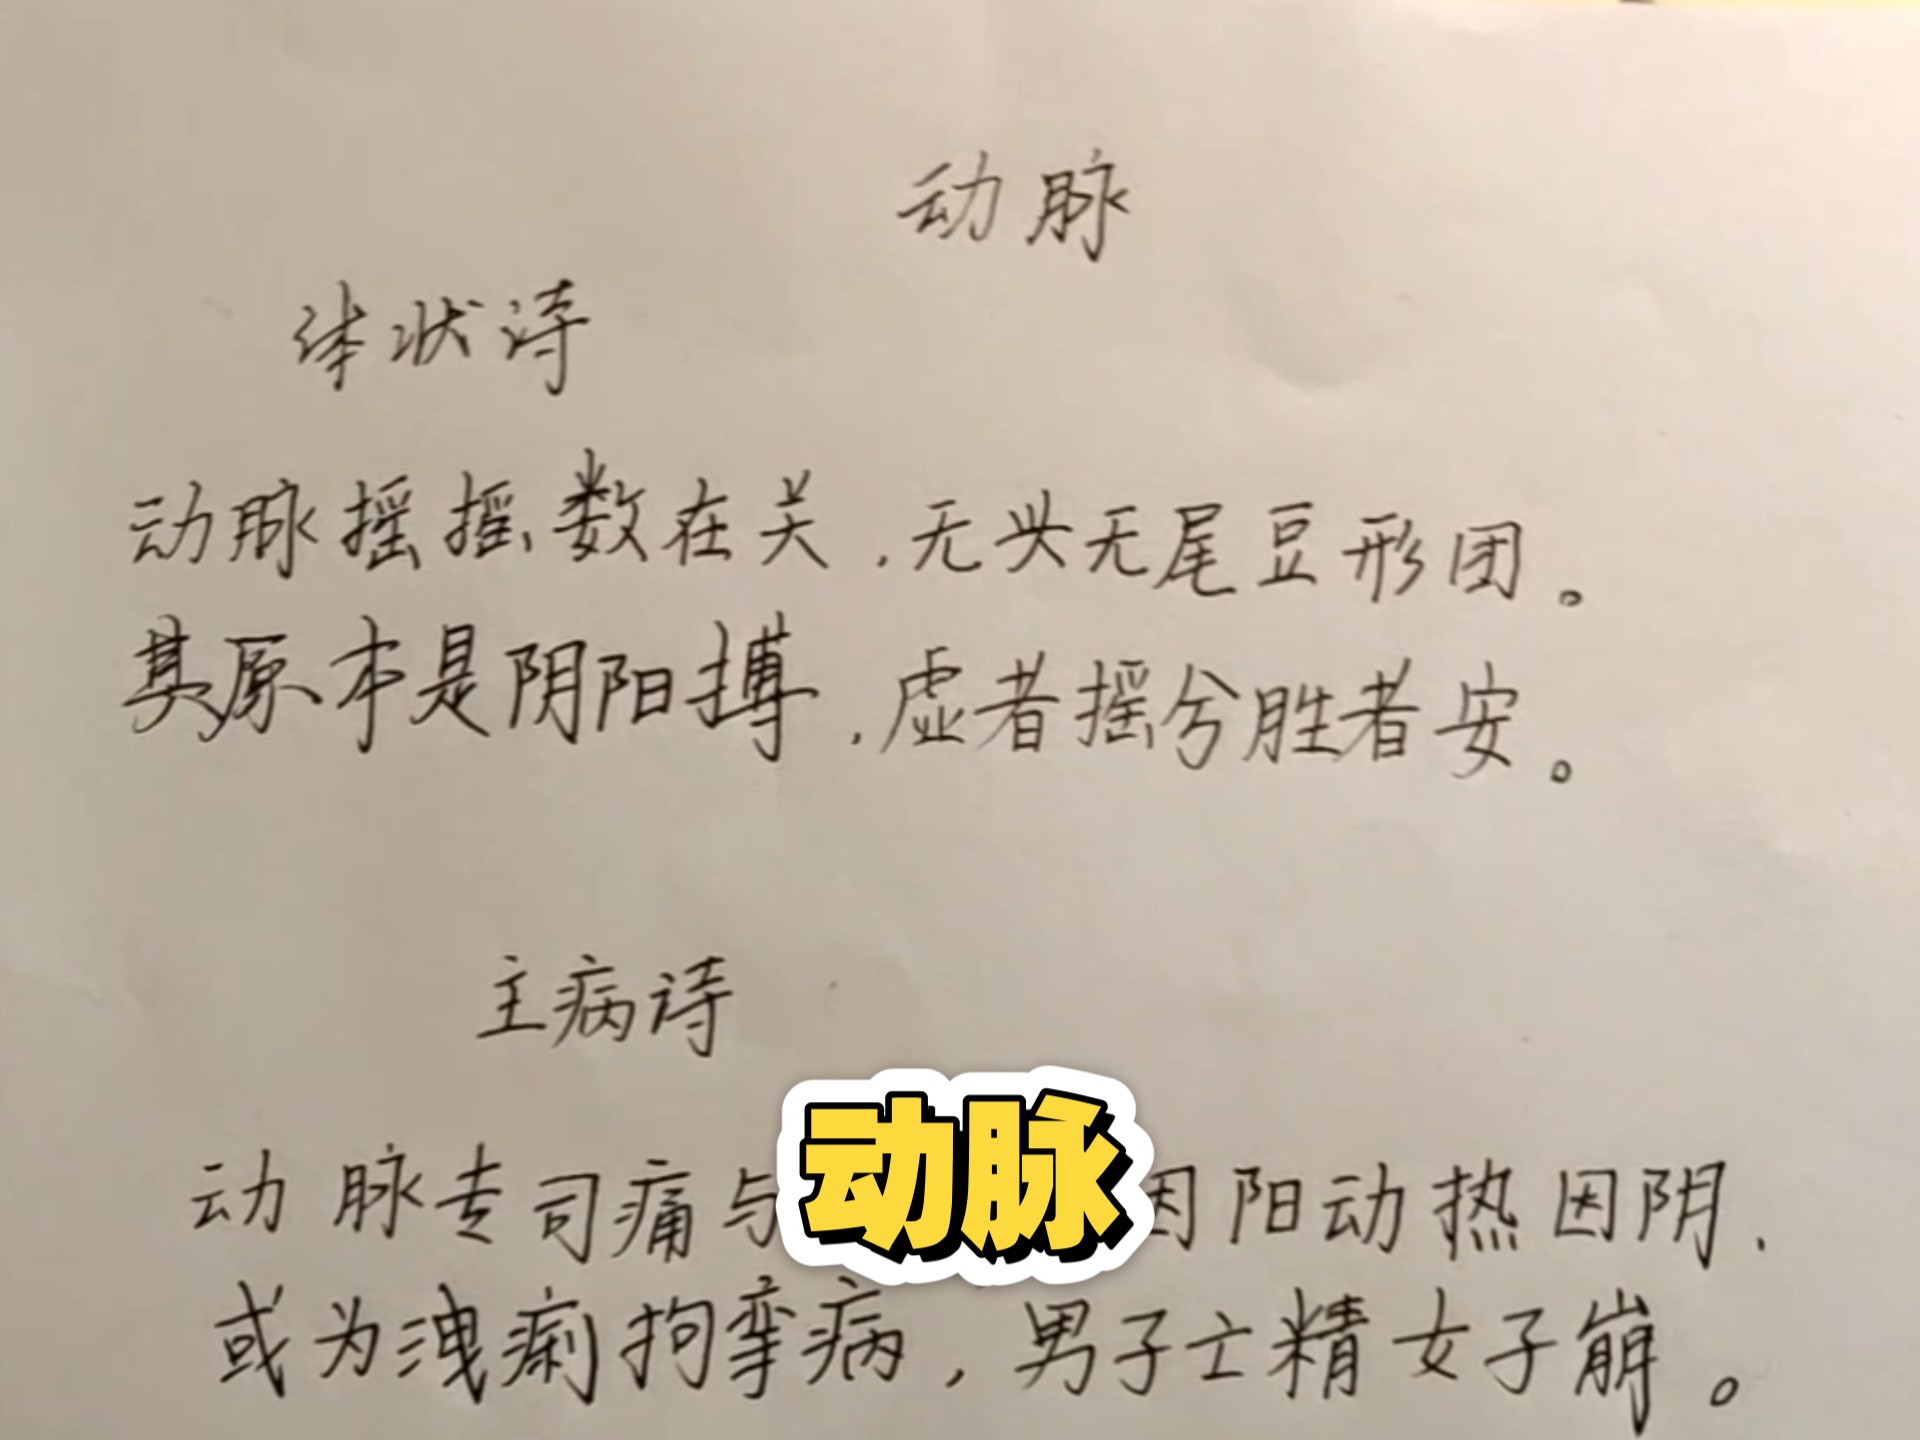 动脉
体状诗
动脉摇摇数在关，无头无尾豆形团。
其原本是阴阳搏，虚者摇兮胜者安。
主病诗
动脉专司痛与
动脉
因阳动热因阴，
或为洩痢拘挛病，男子亡精女子崩。